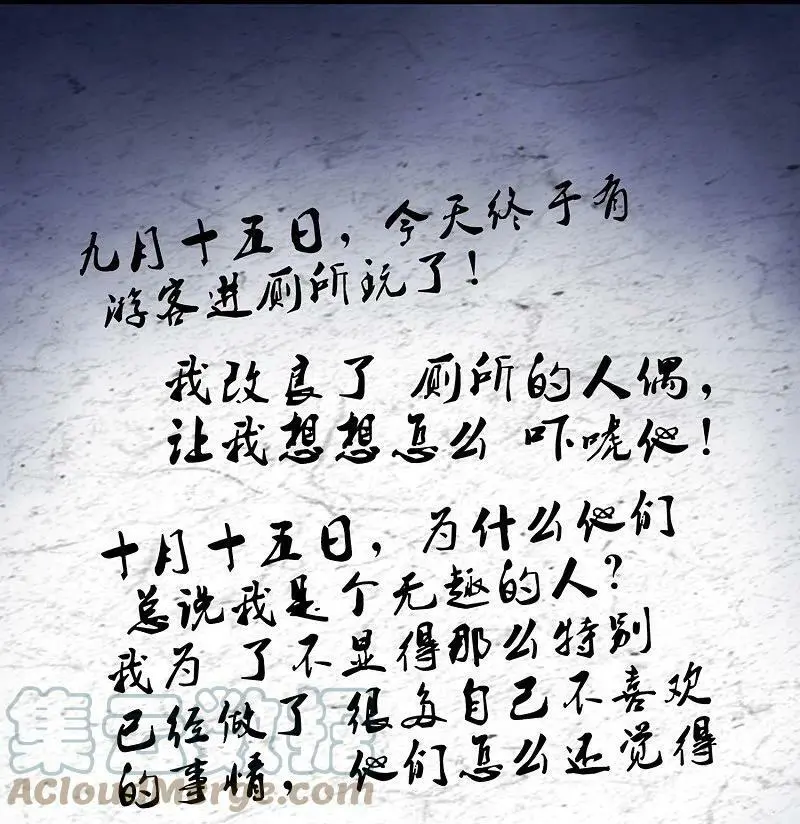 九月十五日，今天终于有
游客进厕所玩了！
我改良了 厕所的人偶，
让我想想怎么 吓唬他！
十月十五日，为什么他们
总说我是个无趣的人？
我为 了不显得那么特别
已经做了 很多自己不喜欢
的事情， 他们怎么还觉得
集云数据
ACloudMerge.com